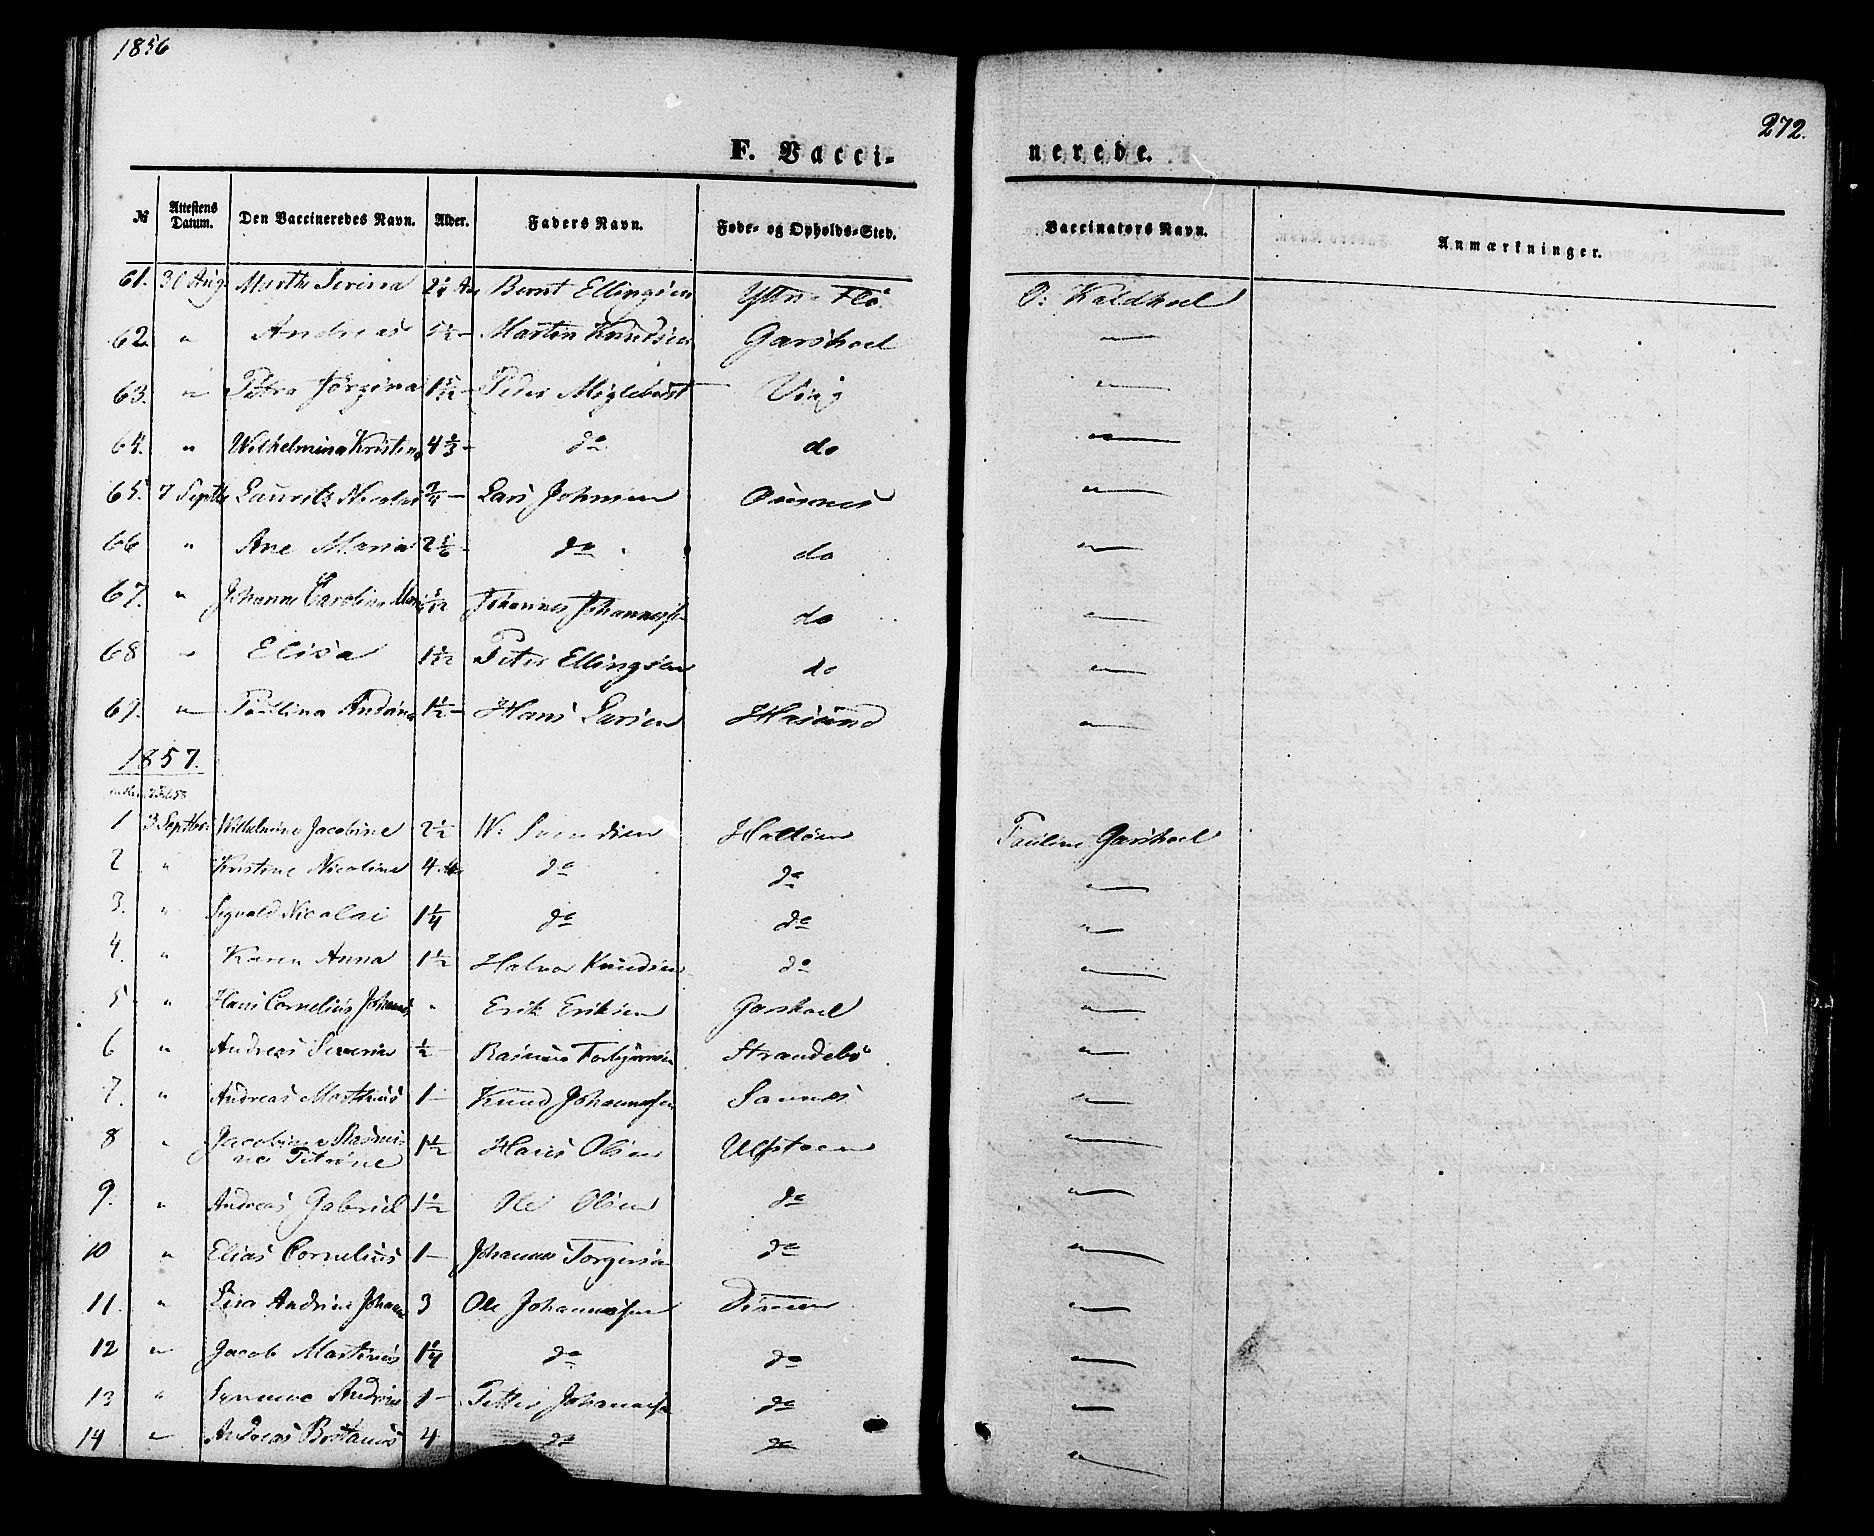 1856
272.
F. Vacci-
nerede.
№ Attestens Datum. Den Vaccineredes Navn. Alder. Faders Navn. Føde- og Opholds-Sted. Vaccinators Navn. Anmærkninger.
61. 30 Aug Marthe Serina 2¼ Bernt Ellingsen Yttre Flö O: Kaldhoel
62. " Andreas Martin Knudsen Garshoel "
63. " Petra Jörgina Peder "
64. " Wilhelmina Kristina 4⅔ do do "
65. 7 Septb Lauritz Nicolai ¾ Lars Johnsen "
66 " Ane Maria 2⅙ do do "
67. " Johanne Carolina Johannes Johanness do "
68 " Elisa Peter Ellingsen do "
69. " Paulina 1½ Hans Larsen Hasund "
1857.
1 3 Septbr. Wilhelmine Jacobine 2½ W. Svendsen Hatlöen Pauline Garshoel
2 " Kristine Nicoline 4 do do "
3. " Sigvald Nicolai 1¼ do do "
4. " Karen Anna 1½ Halvor Knudsen do "
5 " Hans Cornelius Johannes " Erik Eriksen Garshoel "
6 " Andreas Severin ½ Rasmus Torbjörnsen Strandebö "
7. " Andreas Martinus 1 Knud Johannessen Saunes "
8 " Jacobine Rasmi-
ne Petrine 1½ Hans Olsen Ulfsteen "
9. " Andreas Gabriel 1½ Ole Olsen do "
10 " Elias Cornelius 1 Johannes Torgersen do "
11. " Lisa Andrine Johanne 3 Ole Johannessen Dimen "
12 " Jacob Martinus 1¼ do do "
13 " Synneve Andrine 1 Petter Johanness do "
14 " Andreas 4 do do "